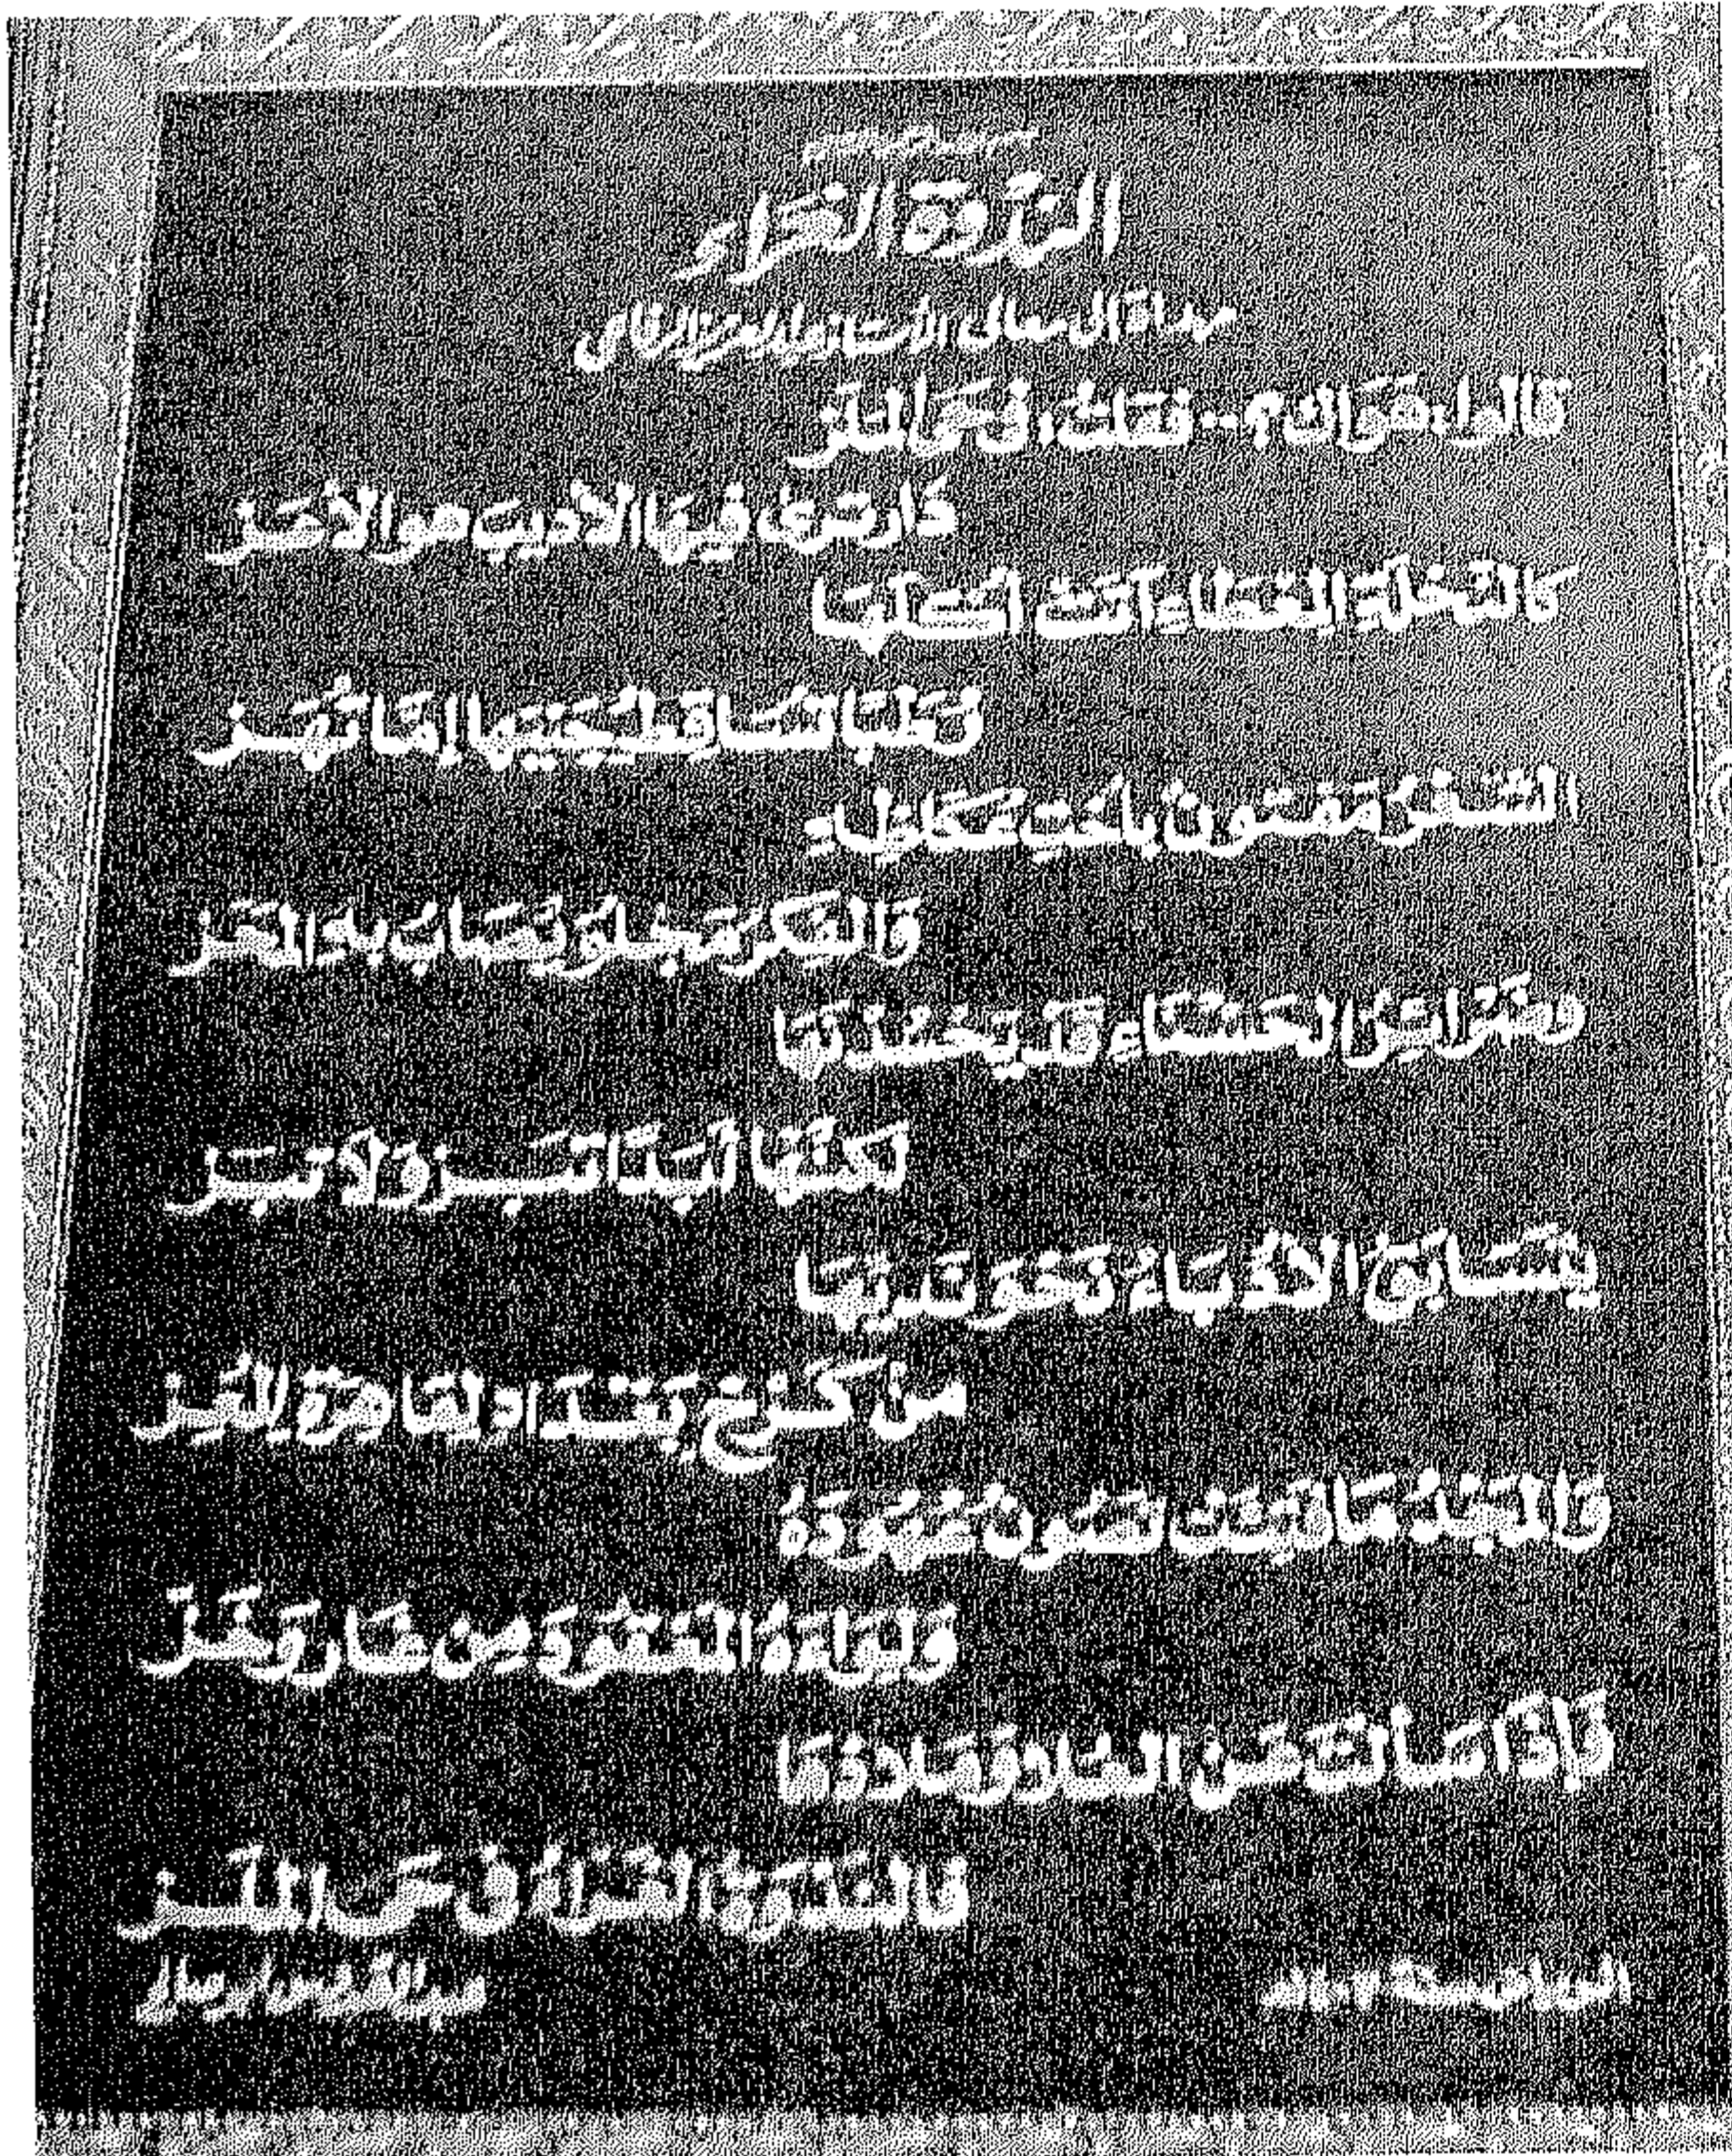 الندوة الغراء
مهداة إلى معالى الأستاذ عبدالعزيز الرفاعى
قَالوا: هَوَاكَ؟.. فَقلتُ: فى حَىِّ الملَز
دَار تَرى فِيهَا الأديبَ هو الأعَز
كَالنَّخلَةِ المعطَاء آتَت أكلَهَا
رُطَبًا تسَاقط يَجتَنِيها إمَّا تُهَز
الشعرُ مَفتونٌ بأختِ عكَاظِه
وَالفِكرُ مَجلوٌ يُصَابُ بهِ المحَز
وضَرائِرُ الحَسنَاءِ قَد يَحسُدنَهَا
لَكنَّهَا أبَدًا تَبُز وَلاَ تُبَز
يتَسَابَقُ الأدَبَاءُ نَحوَ نَديّهَا
من كَرخ بَغدَاد لِقَاهرَةِ المُعِز
وَالمَجدُ مَا فَتِئت تَصُونُ عُهُودَهُ
وَلِوَاءهُ المَعقُودَ مِن خَارٍ وَخَز
فَإذَا سَألتَ عَن العُلا وَمَلاذِهَا
فَالنَّدوَةُ الغَراءُ فى حَى الملَز
الرياض سنة